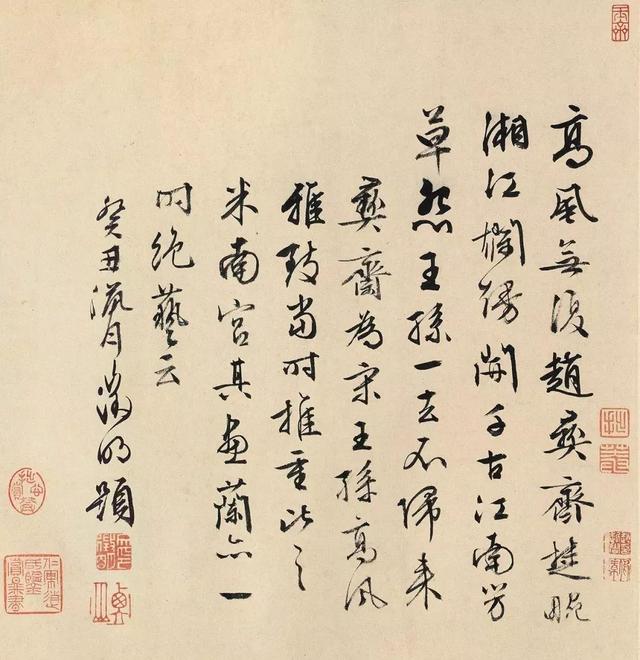 高風無復趙彝齋楚畹
湘江爛熳開千古江南芳
草怨王孫一去不歸来
彝齋為宋王孫高風
雅致當時推重比之
米南宮其畫蘭亦一
時絕藝云
癸丑臘月徵明題